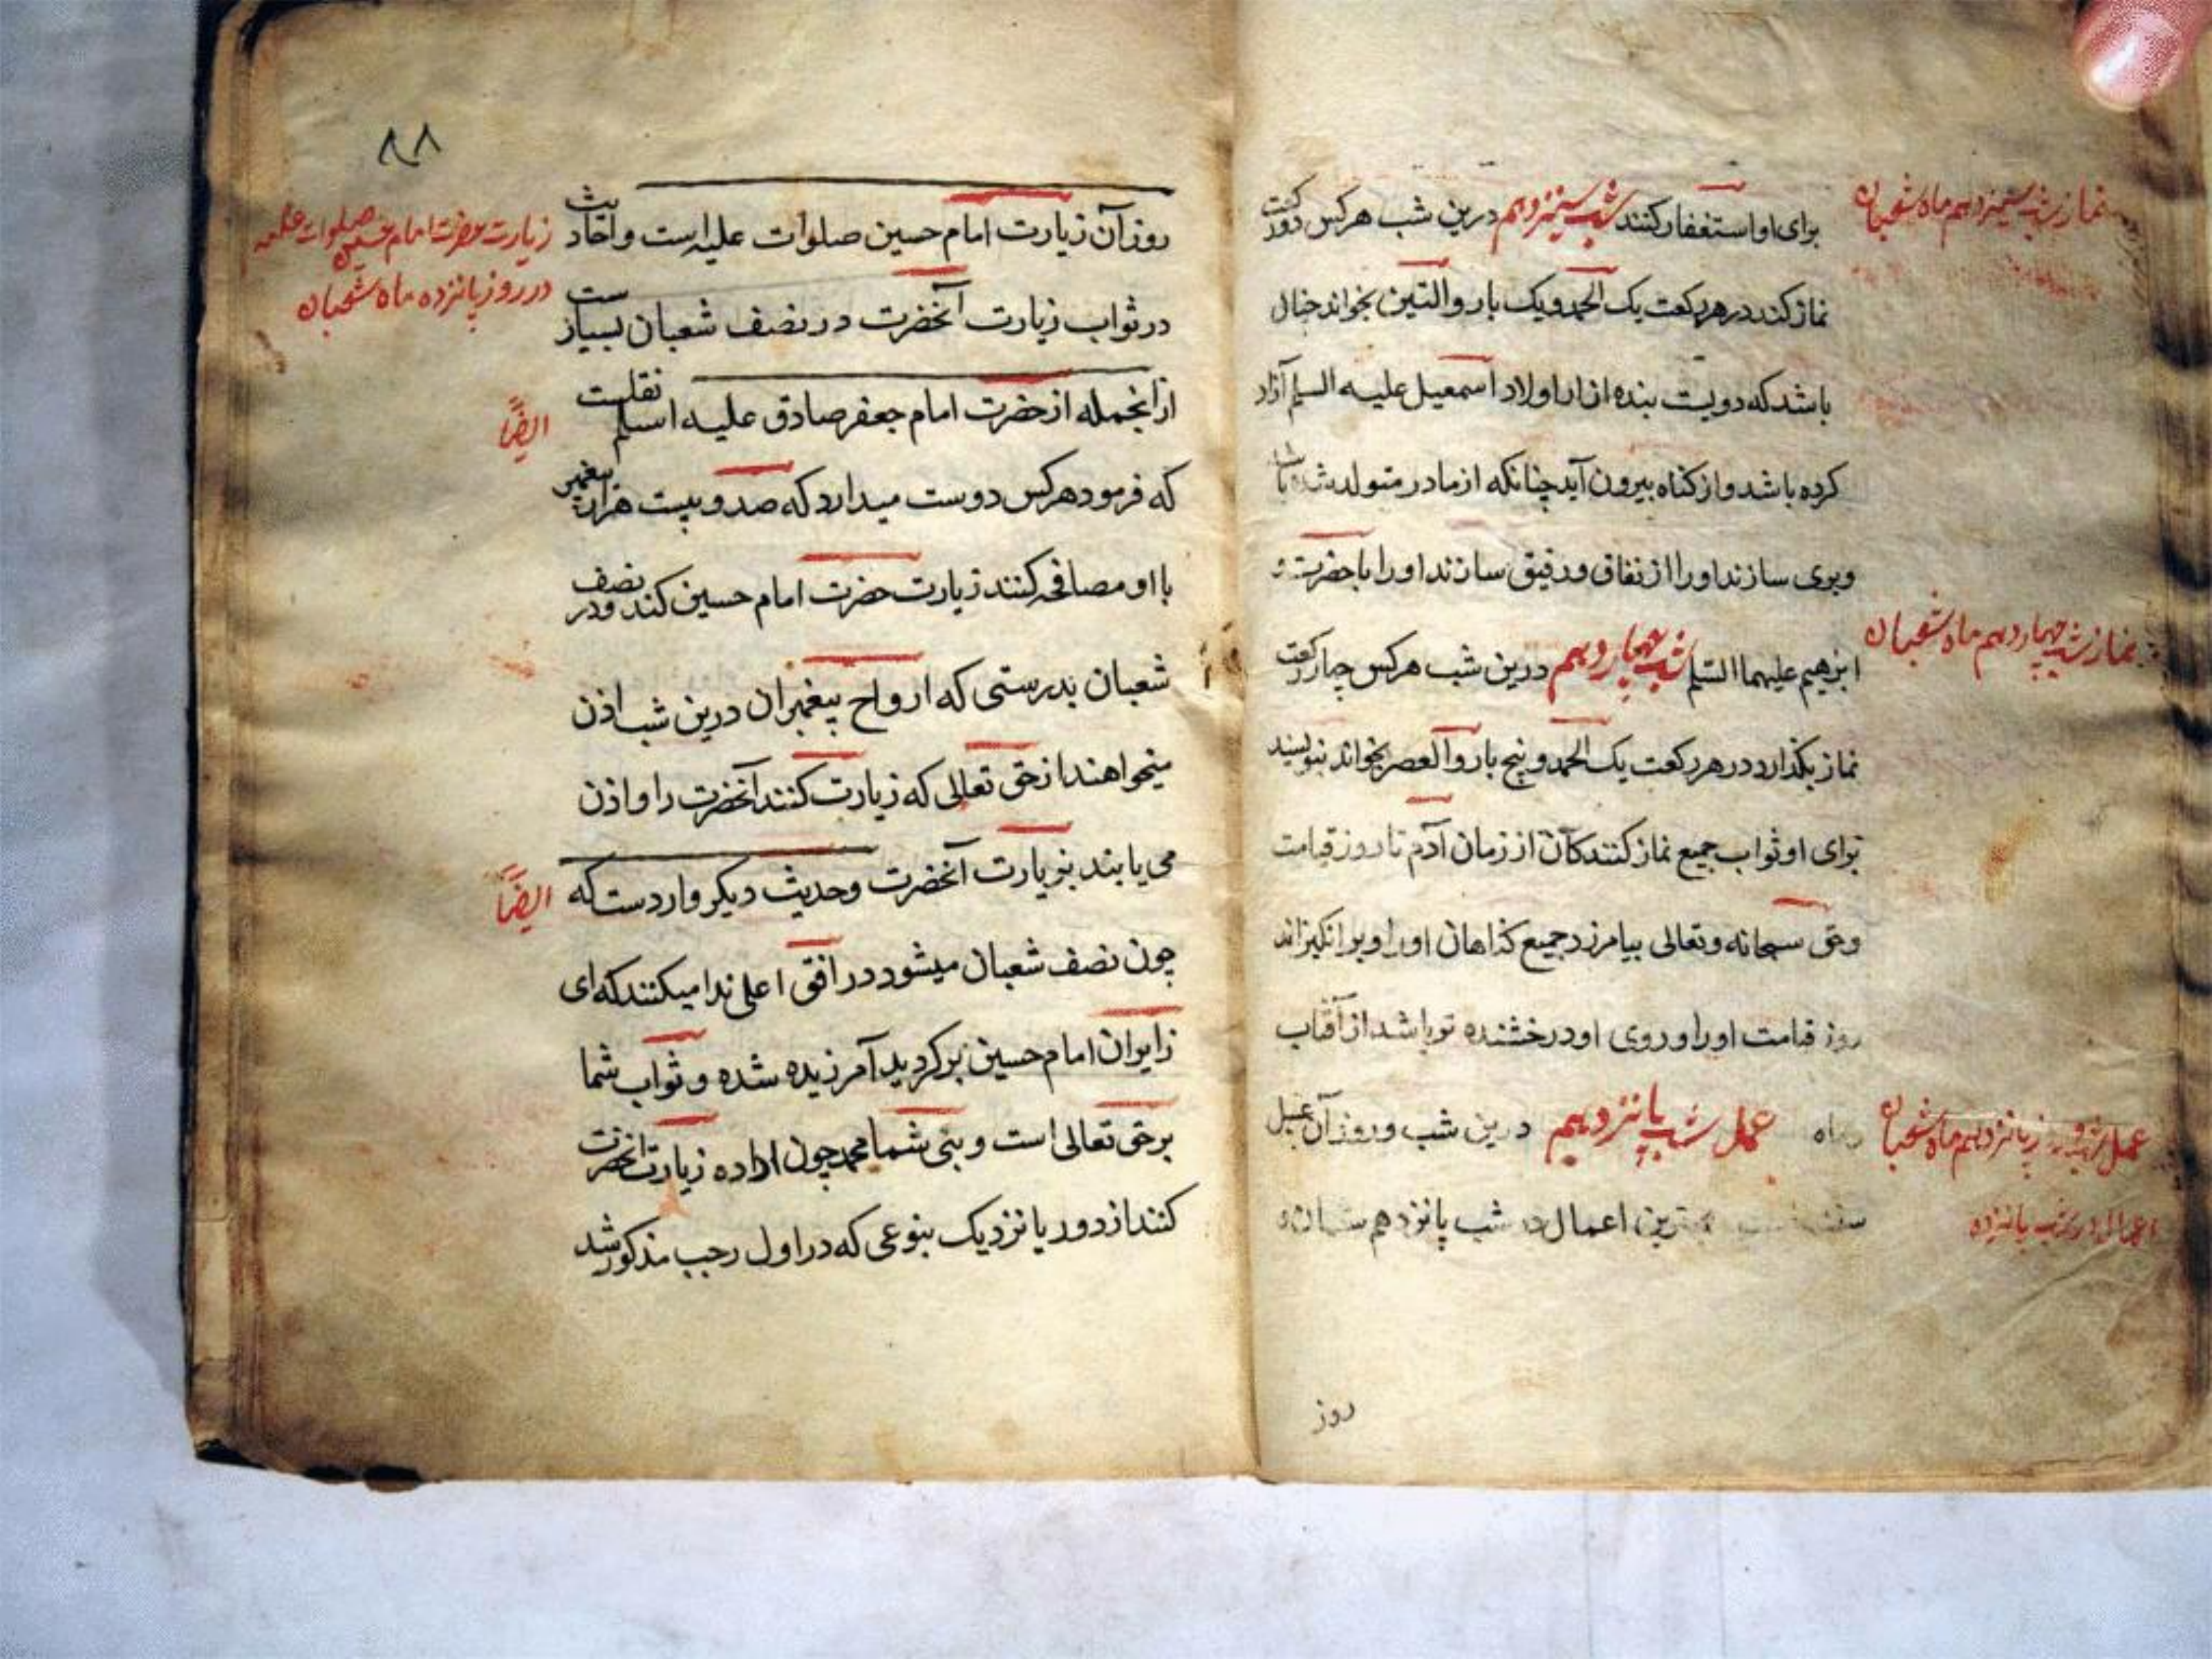 نماز شب سیزدهم ماه شعبان
برای او استغفار کنند شب سیزدهم درین شب هرکس دو رکعت
نماز کند در هر رکعت یک الحمد و یک بار والتین بخواند چنان
باشد که دویست بنده از اولاد اسمعیل علیه السلم آزاد
کرده باشد و از کناه بیرون آید چنانکه از مادر متولد شده باشد
وبری سازند او را از نفاق و رفیق سازند او را با حضرت و
نماز شب چهاردهم ماه شعبان
ابرهیم علیهما السلم شب چهاردهم درین شب هرکس چهار رکعت
نماز بکذارد در هر رکعت یک الحمد و پنج بار والعصر بخواند بنویسند
برای او ثواب جمیع نماز کنندکان از زمان آدم تا روز قیامت
وحق سبحانه وتعالی بیامرزد جمیع کناهان او را و برانکیزاند
روز قیامت او را و روی او درخشنده تر باشد از آفتاب
عمل شب و روز پانزدهم ماه شعبان
وماه عمل شب پانزدهم درین شب و روز آن غسل
اعمال در شب پانزده
سنت است بهترین اعمال در شب پانزدهم شعبان و
روز
۸۸
زیارت حضرت امام حسین صلوات علیه
در روز پانزده ماه شعبان
روز آن زیارت امام حسین صلوات علیه است و احادیث
در ثواب زیارت آنحضرت در نصف شعبان بسیار ست
ایضاً
از انجمله از حضرت امام جعفر صادق علیه اسلم نقلست
که فرمود هرکس دوست میدارد که صد و بیست هزار پیغمبر
با او مصافحه کنند زیارت حضرت امام حسین کند و در نصف
شعبان بدرستی که ارواح پیغمبران درین شب اذن
میخواهند از حق تعالی که زیارت کنند آنحضرت را و اذن
ایضاً
می یابند بزیارت آنحضرت وحدیث دیکر وارد ست که
چون نصف شعبان میشود در افق اعلی ندا میکنند که ای
زایران امام حسین برکردید آمرزیده شده و ثواب شما
برحق تعالی است و بنی شما محمد چون اراده زیارت آنحضرت
کنند از دور یا نزدیک بنوعی که در اول رجب مذکور شد